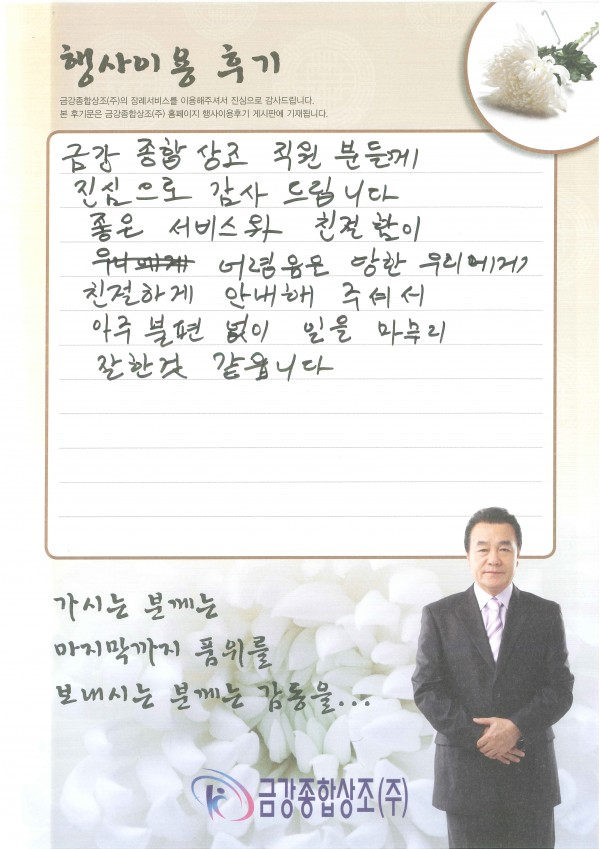 행사이용 후기
금강종합상조(주)의 장례서비스를 이용해주셔서 진심으로 감사드립니다.
본 후기문은 금강종합상조(주) 홈페이지 행사이용후기 게시판에 기재됩니다.
금강 종합 상조 직원 분들께
진심으로 감사 드립니다
좋은 서비스와 친절함이
우리에게 어렴움은 당한 우리에게
친절하게 안내해 주셔서
아주 불편 없이 일을 마무리
잘한것 같읍니다
가시는 분께는
마지막까지 품위를
보내시는 분께는 감동을...
금강종합상조(주)